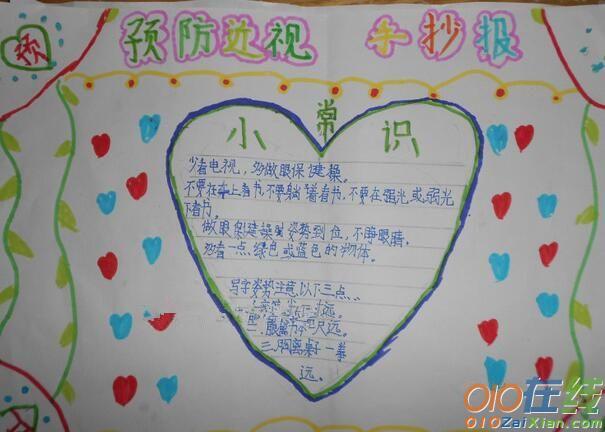 预
预防近视 手抄报
小常识
少看电视，多做眼保健操。
不要在车上看书，不要躺着看书，不要在强光或弱光
下看书。
做眼保健操时姿势到位，不睁眼睛。
多看一点绿色或蓝色的物体。
写字姿势注意以下三点
远。
二，眼离书一尺远。
三，胸离桌子一拳
远。
010在线
010ZaiXian.com